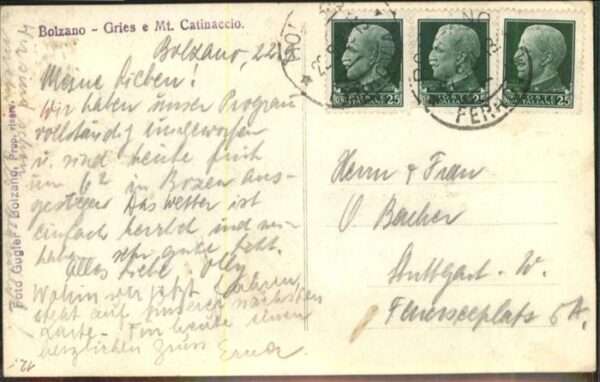 Bolzano - Gries e Mt. Catinaccio.
Bolzano, 22.9.
Meine Lieben!
Wir haben unser Program
vollständig umgeworfen
u. sind heute früh
um in Bozen aus-
gestiegen. Das Wetter ist
einfach herrlich und wir
haben sehr gute Zeit.
Alles Liebe Olly
Wohin wir jetzt fahren
steht auf unserer nächsten
Karte - Für heute einen
herzlichen Gruss Erna.
Foto Gugler - Bolzano, Prop. riserv.
25
25
25
FERR
Herrn & Frau
O Bacher
Stuttgart - W.
Feuerseeplatz 5A.